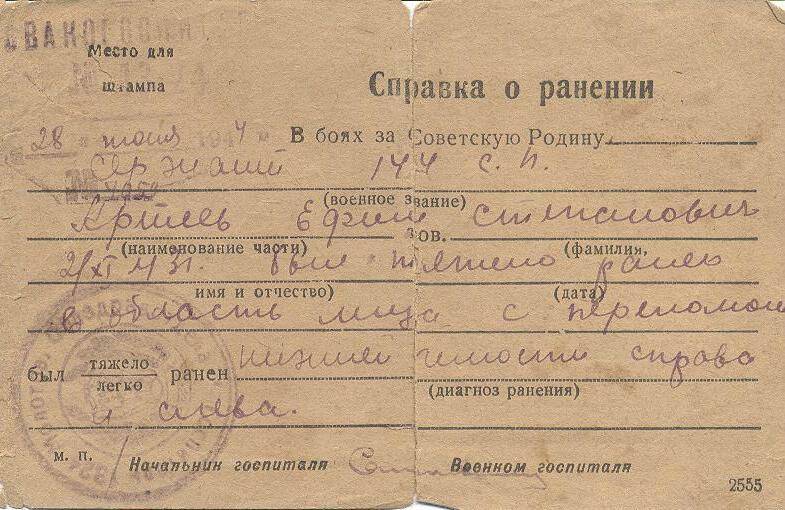 ЭВАКОГОСПИТ
Место для
№
штампа
Справка о ранении
28 " июня 1944
В боях за Советскую Родину
сержант 144 с. п.
(военное звание)
Ефим Степанович
тов.
(наименование части) (фамилия,
2/XI 43г. был тяжело ранен
имя и отчество) (дата)
в область лица с переломом
тяжело
был ранен
легко
нижней челюсти справа
(диагноз ранения)
и слева.
м. п.
Начальник госпиталя Военком госпиталя
2555